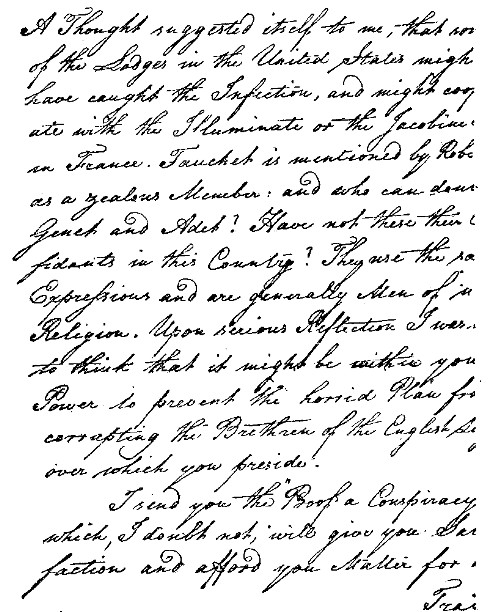 A Thought suggested itself to me, that som
of the Lodges in the United States migh
have caught the Infection, and might coop
ate with the Illuminate or the Jacobine
in France. Fauchet is mentioned by Robe
as a zealous Member: and who can dou
Genet and Adet? Have not these their
fidants in this Country? They use the sa
Expressions and are generally Men of n
Religion. Upon serious Reflection I was
to think that it might be within your
Power to prevent the horrid Plan fro
corrupting the Brethren of the English Lo
over which you preside.
I send you the "Proof of a Conspiracy
which, I doubt not, will give you Sat
faction and afford you Matter for a
Trai